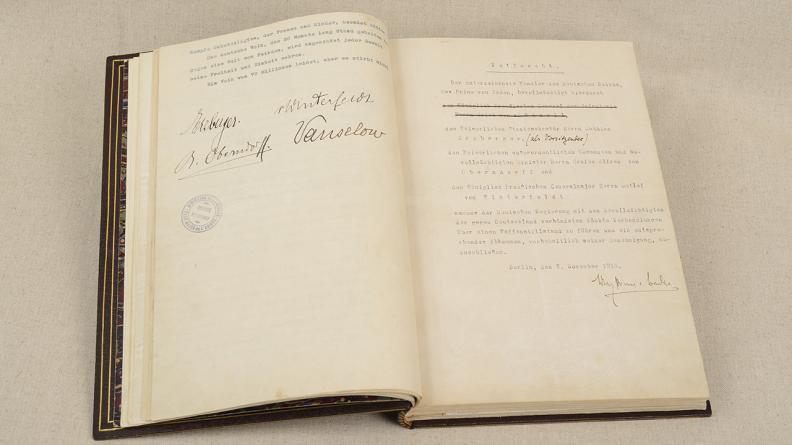 Kampfe Unbeteiligten, der Frauen und Kinder,
Das deutsche Volk, das 50 Monate lang Stand gehalten
gegen eine Welt von Feinden, wird ungeachtet jeder Gewalt
seine Freiheit und Einheit wahren.
Ein Volk von 70 Millionen leidet, aber es stirbt nicht.
Erzberger. vWinterfeldt
A. Oberndorff. Vanselow
Vollmacht.
Der unterzeichnete Kanzler des Deutschen Reichs,
Max Prinz von Baden, bevollmächtigt hierdurch
den Kaiserlichen Staatssekretär Herrn Mathias
Erzberger, (als Vorsitzenden)
den Kaiserlichen ausserordentlichen Gesandten und be-
vollmächtigten Minister Herrn Grafen Alfred von
Oberndorff und
den Königlich Preußischen Generalmajor Herrn Detlef
von Winterfeldt
namens der Deutschen Regierung mit den Bevollmächtigten
der gegen Deutschland verbündeten Mächte Verhandlungen
über einen Waffenstillstand zu führen und ein entspre-
chendes Abkommen, vorbehaltlich seiner Genehmigung, ab-
zuschließen.
Berlin, den November 1918.